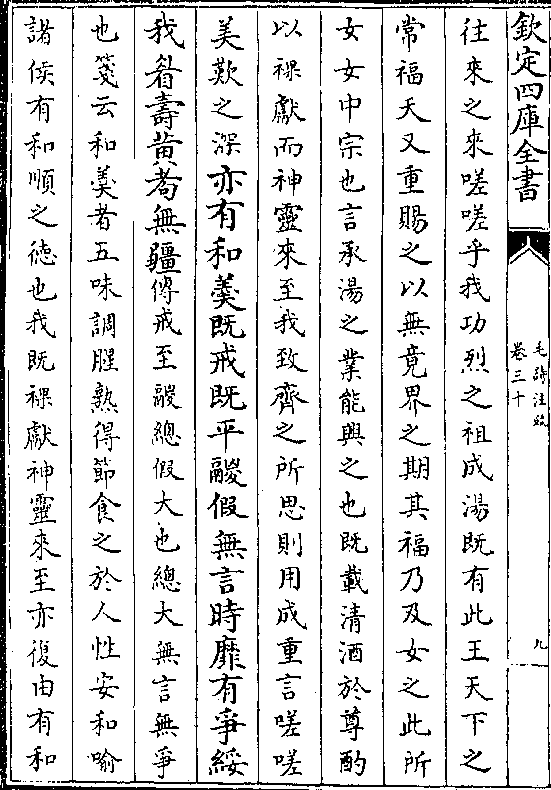 欽定四庫全書
毛詩注疏
卷三十
九
往來之來嗟嗟乎我功烈之祖成湯既有此王天下之
常福天又重賜之以無竟界之期其福乃及女之此所
女女中宗也言承湯之業能興之也既載清酒於尊酌
以祼獻而神靈來至我致齊之所思則用成重言嗟嗟
美歎之深亦有和羹既戒既平鬷假無言時靡有爭綏
我眉壽黃耇無疆傳戒至鬷總假大也總大無言無爭
也箋云和羹者五味調腥熟得節食之於人性安和喻
諸侯有和順之德也我既祼獻神靈來至亦復由有和